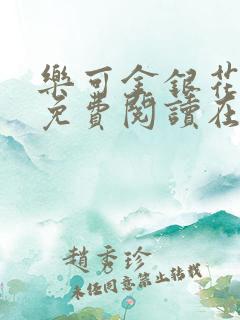 樂可金銀花
免費閱讀在
趙秀珍
未经同意禁止转载